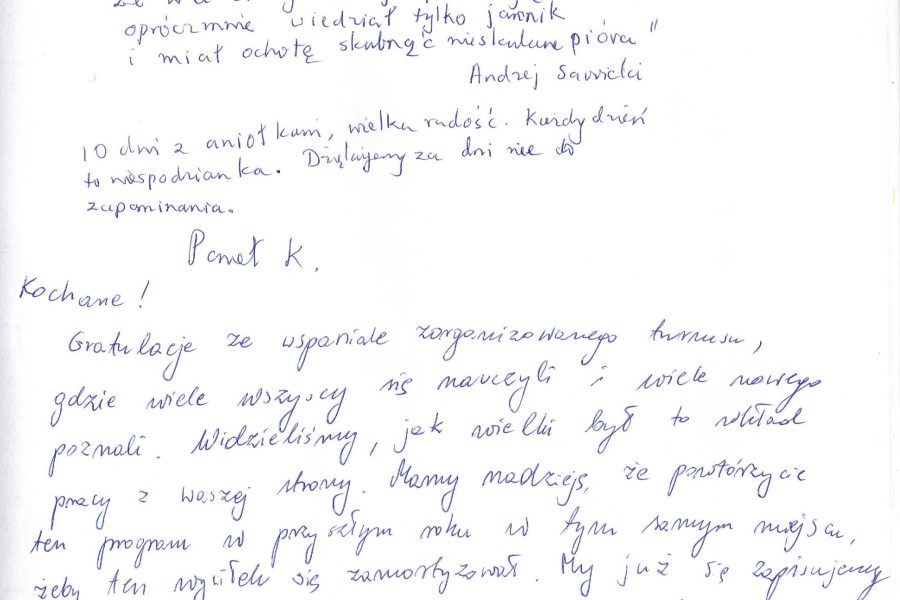 oprócz mnie wiedział tylko jamnik
i miał ochotę skubnąć nieskubane pióra"
Andrzej Sawicki
10 dni z aniołkami, wielka radość. Każdy dzień
to niespodzianka. Dziękujemy za dni nie do
zapominania.
Paweł K.
Kochane!
Gratulacje ze wspaniale zorganizowanego turnusu,
gdzie wiele wszyscy się nauczyli i wiele nowego
poznali. Widzieliśmy, jak wielki był to wkład
pracy z waszej strony. Mamy nadzieję, że powtórzycie
ten program w przyszłym roku w tym samym miejscu,
żeby ten wysiłek się zamortyzował. My już się zapisujemy